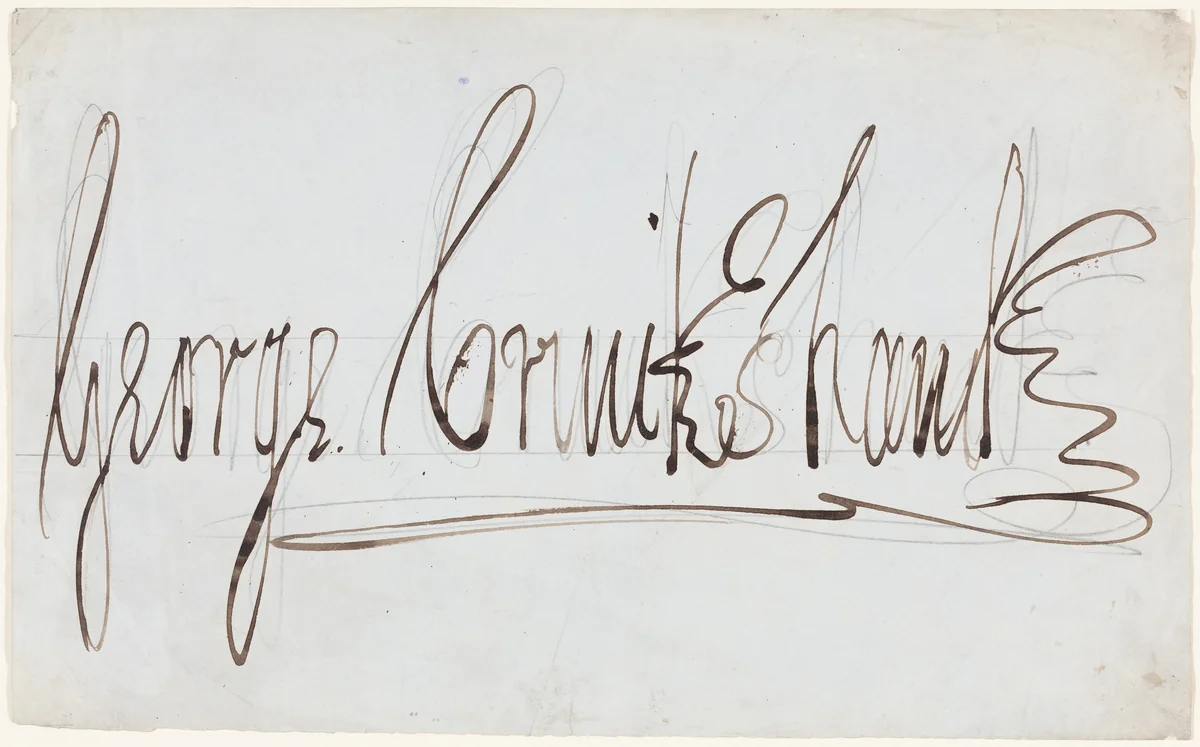 George. Cruikshank